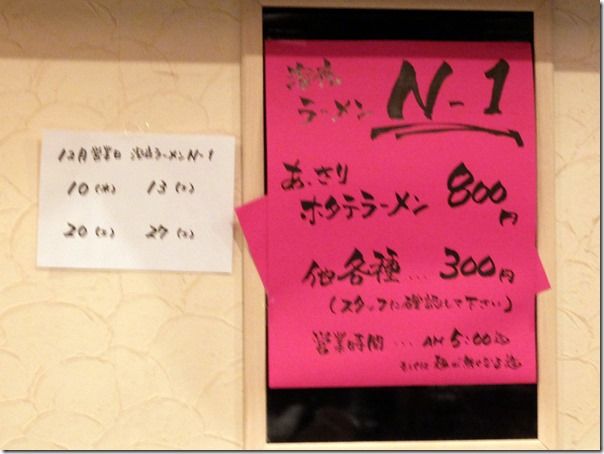 12月営業日 ラーメンN-1
10(水) 13(土)
20(土) 27(土)
ラーメン N-1
あさり
ホタテラーメン 800円
他各種…300円
(スタッフに確認して下さい)
営業時間…AM 5:00迄
麺が無くなる迄